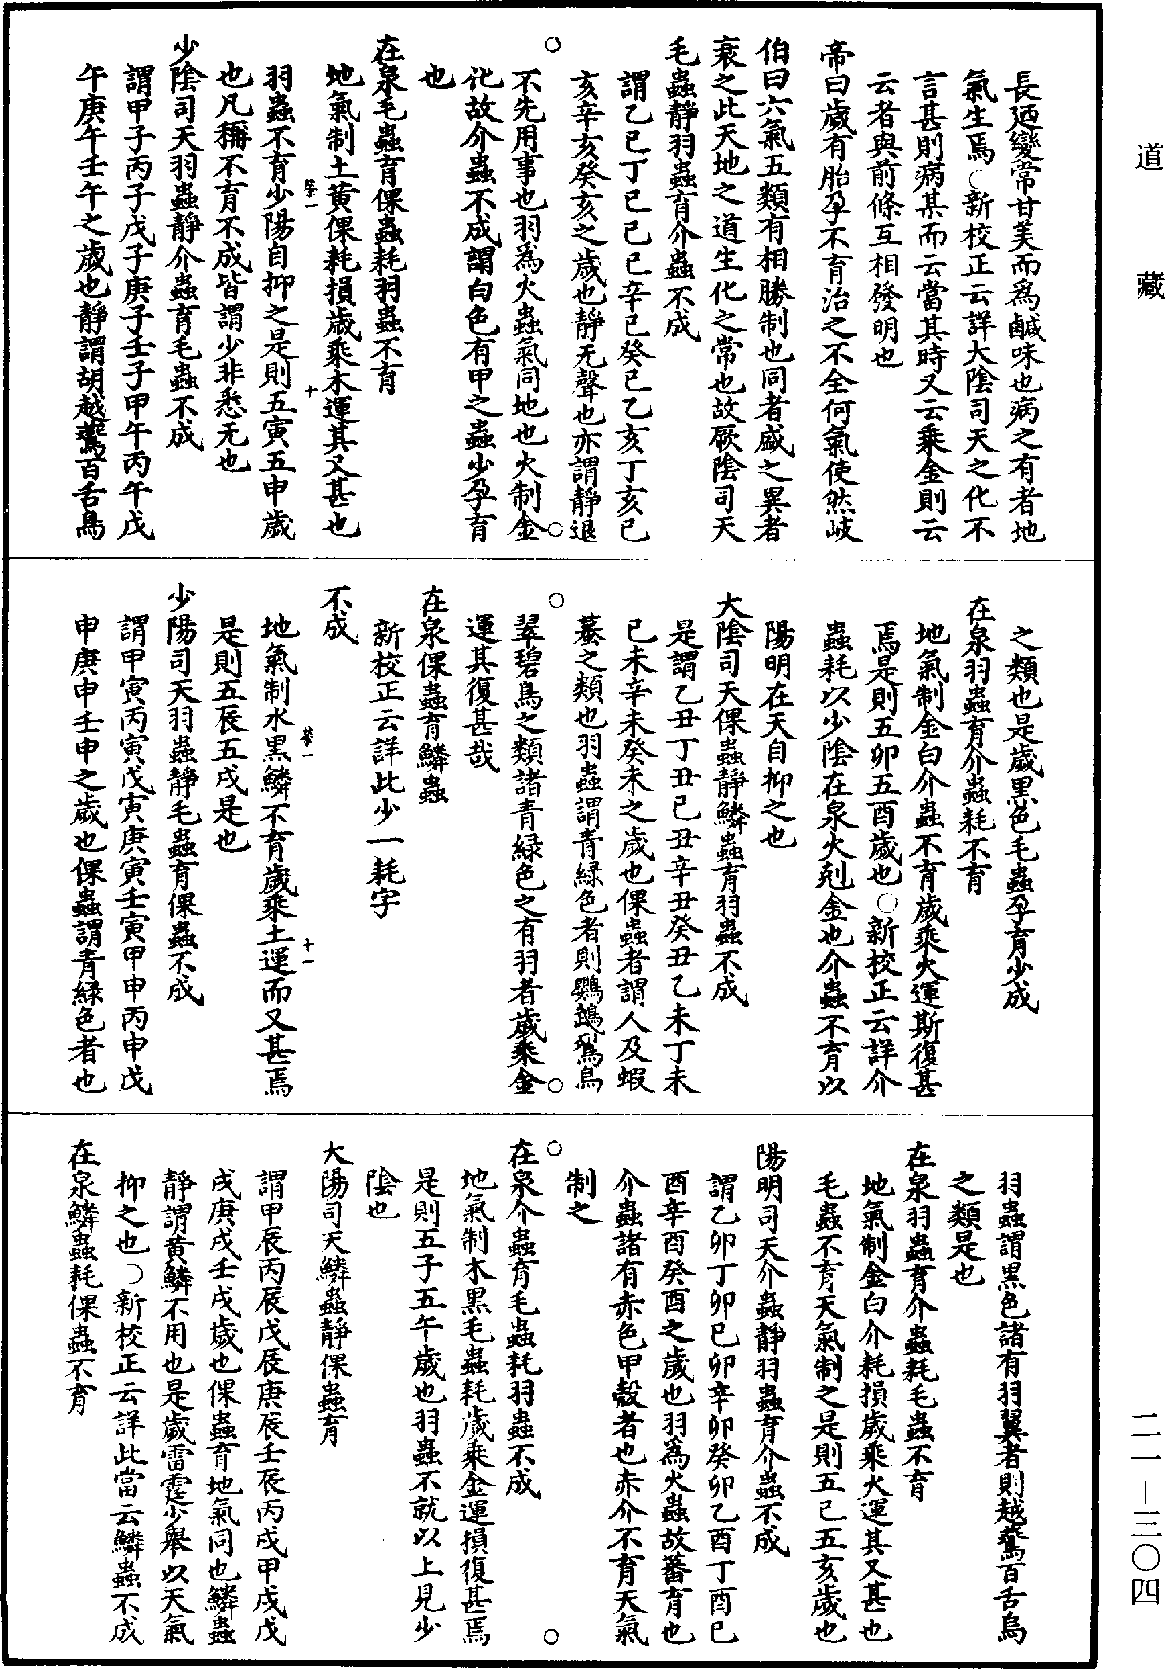 道藏
長迺變常甘美而爲鹹味也病之有者地
氣生焉○新校正云詳大陰司天之化不
言甚則病某而云當其時又云乘金則云
云者與前條互相發明也
帝曰歲有胎孕不育治之不全何氣使然岐
伯曰六氣五類有相勝制也同者盛之異者
衰之此天地之道生化之常也故厥陰司天
毛蟲靜羽蟲育介蟲不成
謂乙巳丁巳己巳辛巳癸巳乙亥丁亥己
亥辛亥癸亥之歲也靜无聲也亦謂靜退
不先用事也羽爲火蟲氣同地也火制金
化故介蟲不成謂白色有甲之蟲少孕育
也
在泉毛蟲育倮蟲耗羽蟲不育
地氣制土黃倮耗損歲乘木運其又甚也
羽蟲不育少陽自抑之是則五寅五申歲
也凡稱不育不成皆謂少非悉无也
少陰司天羽蟲靜介蟲育毛蟲不成
謂甲子丙子戊子庚子壬子甲午丙午戊
午庚午壬午之歲也靜謂胡越鷰百舌鳥
之類也是歲黑色毛蟲孕育少成
在泉羽蟲育介蟲耗不育
地氣制金白介蟲不育歲乘火運斯復甚
焉是則五卯五酉歲也○新校正云詳介
蟲耗以少陰在泉火剋金也介蟲不育以
陽明在天自抑之也
大陰司天倮蟲靜鱗蟲育羽蟲不成
是謂乙丑丁丑己丑辛丑癸丑乙未丁未
己未辛未癸未之歲也倮蟲者謂人及蝦
蟇之類也羽蟲謂青綠色者則鸚鵡鴷鳥
翠碧鳥之類諸青綠色之有羽者歲乘金
運其復甚哉
在泉倮蟲育鱗蟲
新校正云詳此少一耗字
不成
地氣制水黑鱗不育歲乘土運而又甚焉
是則五辰五戌是也
少陽司天羽蟲靜毛蟲育倮蟲不成
謂甲寅丙寅戊寅庚寅壬寅甲申丙申戊
申庚申壬申之歲也倮蟲謂青綠色者也
羽蟲謂黑色諸有羽翼者則越鷰百舌鳥
之類是也
在泉羽蟲育介蟲耗毛蟲不育
地氣制金白介耗損歲乘火運其又甚也
毛蟲不育天氣制之是則五巳五亥歲也
陽明司天介蟲靜羽蟲育介蟲不成
謂乙卯丁卯己卯辛卯癸卯乙酉丁酉己
酉辛酉癸酉之歲也羽爲火蟲故蕃育也
介蟲諸有赤色甲殼者也赤介不育天氣
制之
在泉介蟲育毛蟲耗羽蟲不成
地氣制木黑毛蟲耗歲乘金運損復甚焉
是則五子五午歲也羽蟲不就以上見少
陰也
大陽司天鱗蟲靜倮蟲育
謂甲辰丙辰戊辰庚辰壬辰丙戌甲戌戊
戌庚戌壬戌歲也倮蟲育地氣同也鱗蟲
靜謂黃鱗不用也是歲雷霆少舉以天氣
抑之也○新校正云詳此當云鱗蟲不成
在泉鱗蟲耗倮蟲不育
二一—三〇四